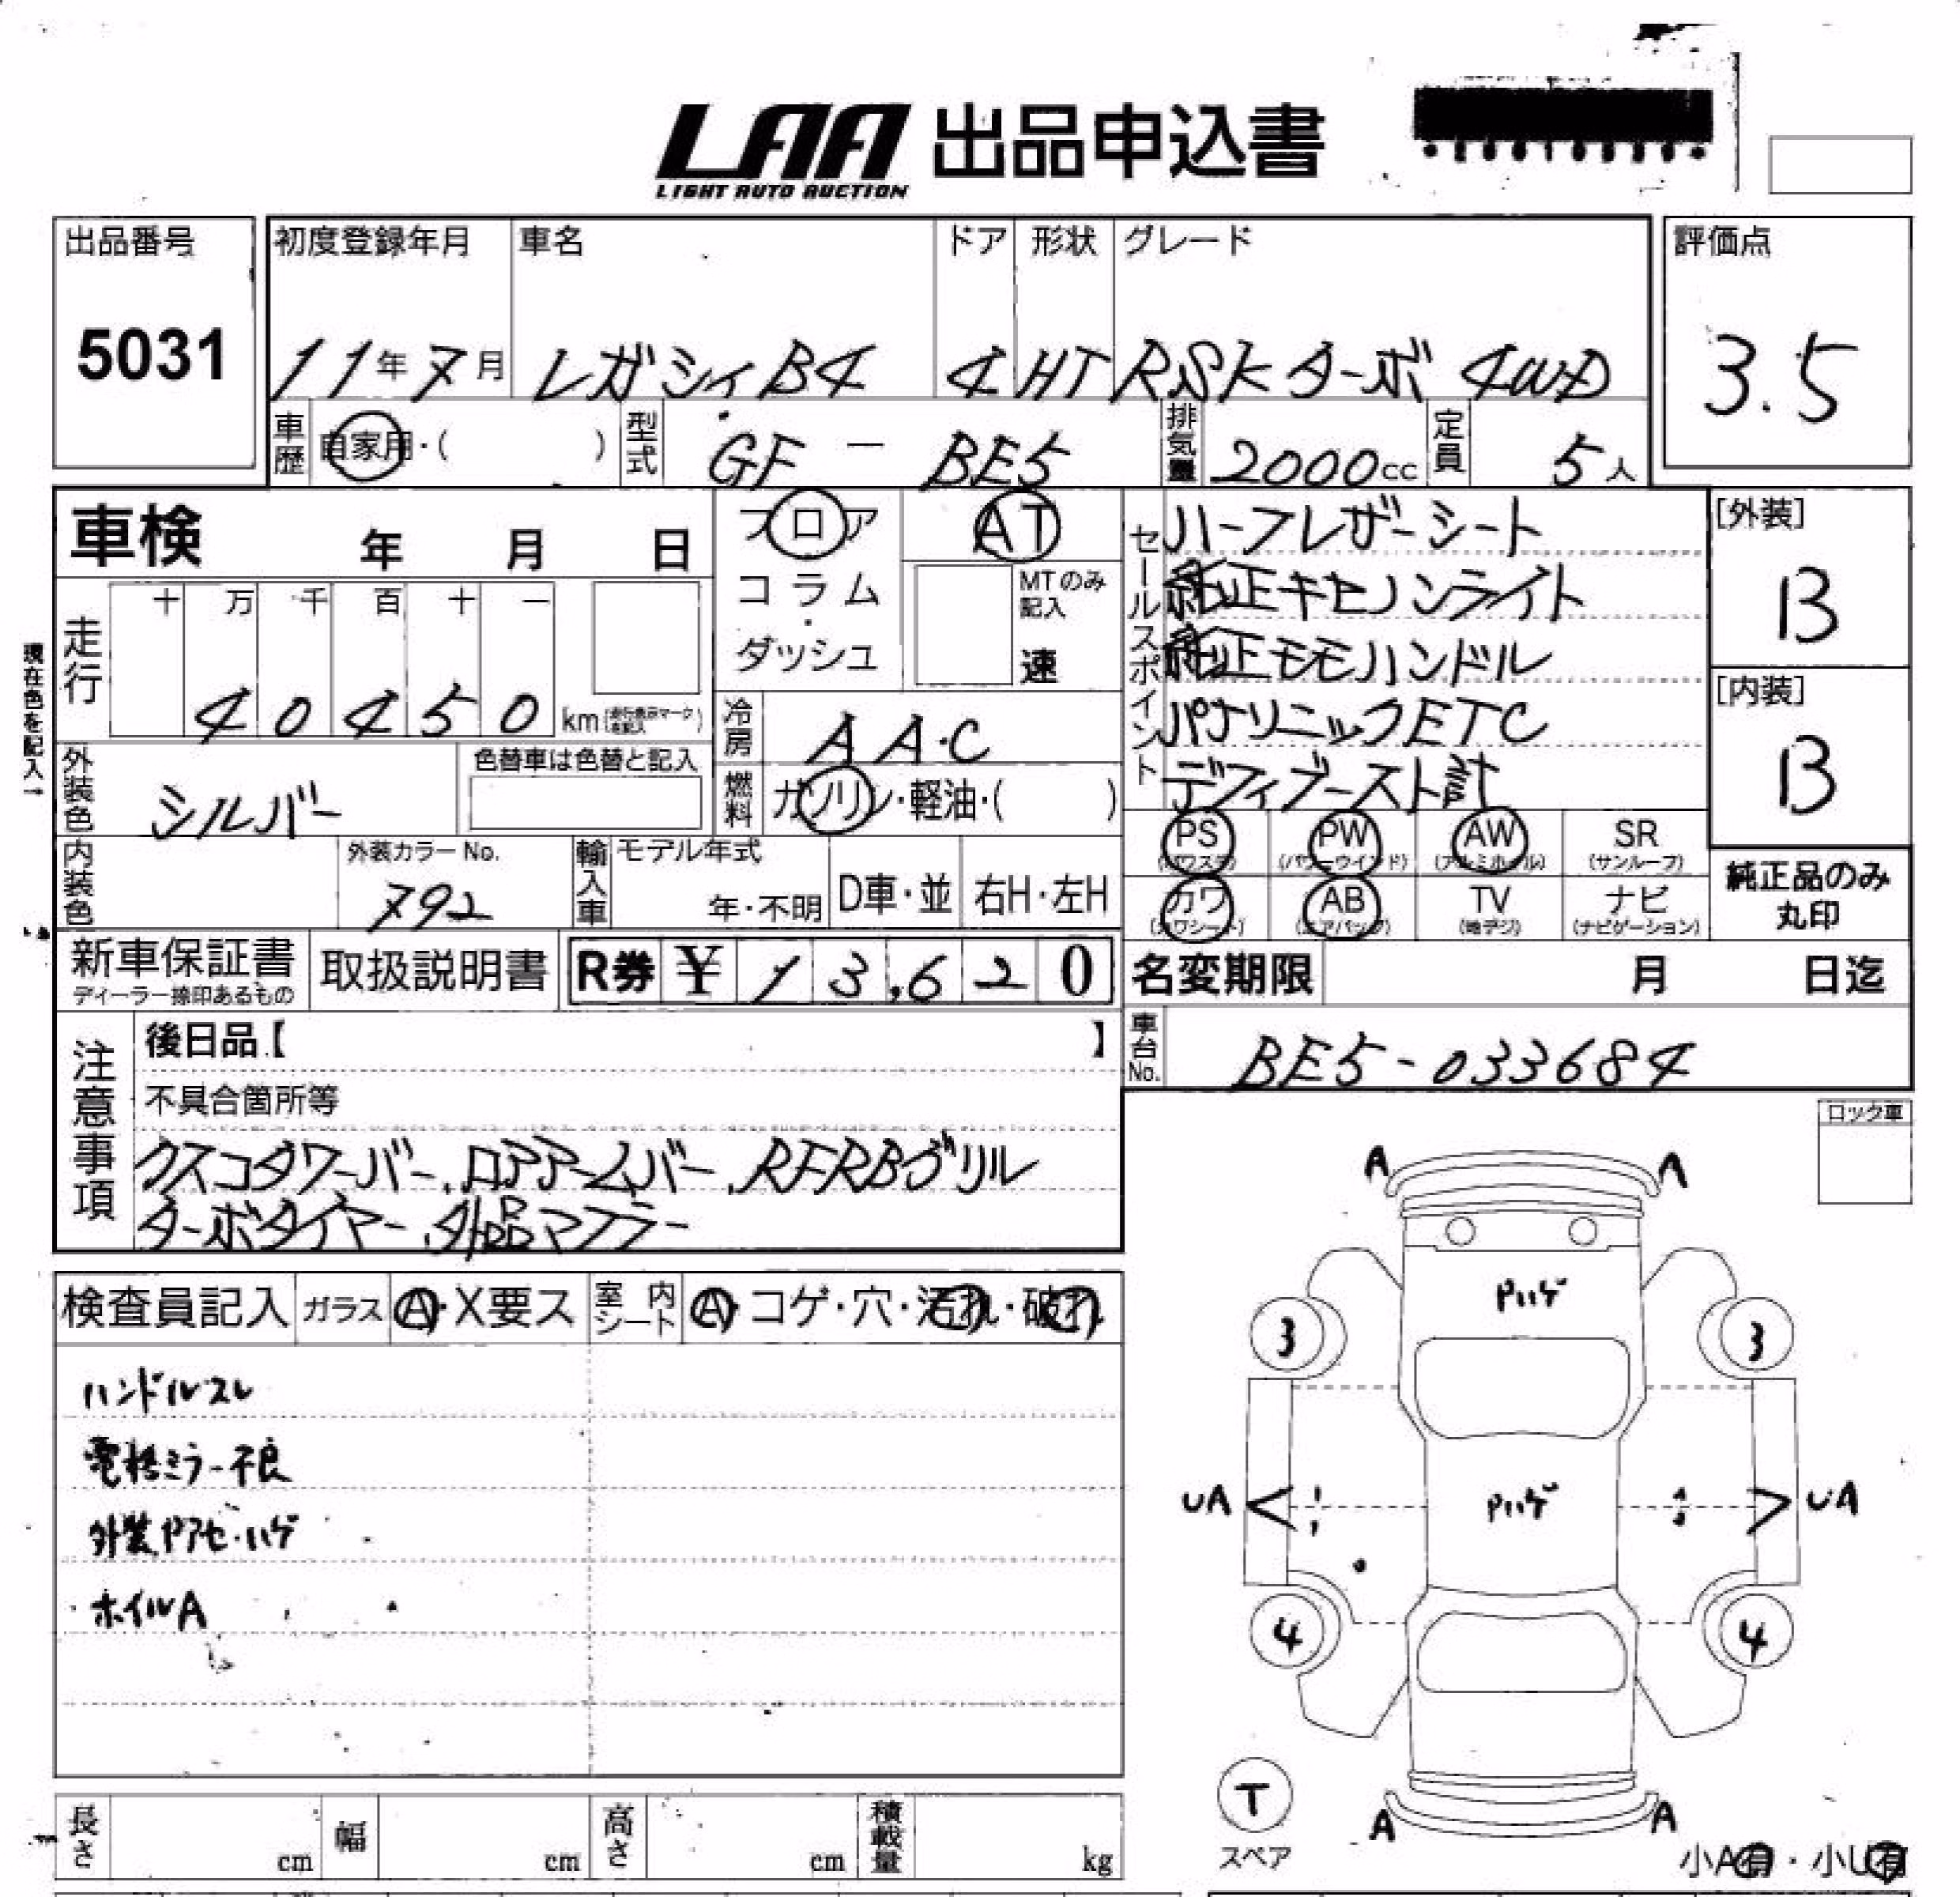 LAA 出品申込書
LIGHT AUTO AUCTION
出品番号 初度登録年月 車名 ドア 形状 グレード 評価点
5031 11年7月 レガシィB4 4 HT RSKターボ 4WD 3.5
車歴 自家用・( ) 型式 GF - BE5 排気量 2000cc 定員 5人
車検 年 月 日 フロア AT セールスポイント ハーフレザーシート [外装]
コラム・ MTのみ記入 純正キセノンライト B
ダッシュ 速 純正モモハンドル
走行 十 万 千 百 十 一 [内装]
40450 km 冷房 AAC パナソニックETC B
現在色を記入→
外装色 シルバー 色替車は色替と記入 燃料 ガソリン・軽油・( ) デフィブースト計
PS (パワステ) PW (パワーウインド) AW (アルミホイル) SR (サンルーフ)
内装色 外装カラーNo. 792 輸入車 モデル年式 年・不明 D車・並 右H・左H
カワ (カワシート) AB (エアバッグ) TV (地デジ) ナビ (ナビゲーション) 純正品のみ丸印
新車保証書 取扱説明書 R券 ¥ 13,620 名変期限 月 日迄
ディーラー捺印あるもの
注意事項 後日品【 】 車台No. BE5-033684
不具合箇所等 ロック車
クスコタワーバー、ロアアームバー、RFRBグリル
ターボタイヤー、外品マフラー
検査員記入 ガラス A・X要ス 室内シート A・コゲ・穴・汚れ・破れ
ハンドルスレ
電格ミラー不良
外装Pアセ・ハゲ
ホイルA
A A
Pハゲ
3 3
UA Pハゲ UA
4 4
T
スペア
A A
小A有・小U有
長さ cm 幅 cm 高さ cm 積載量 kg